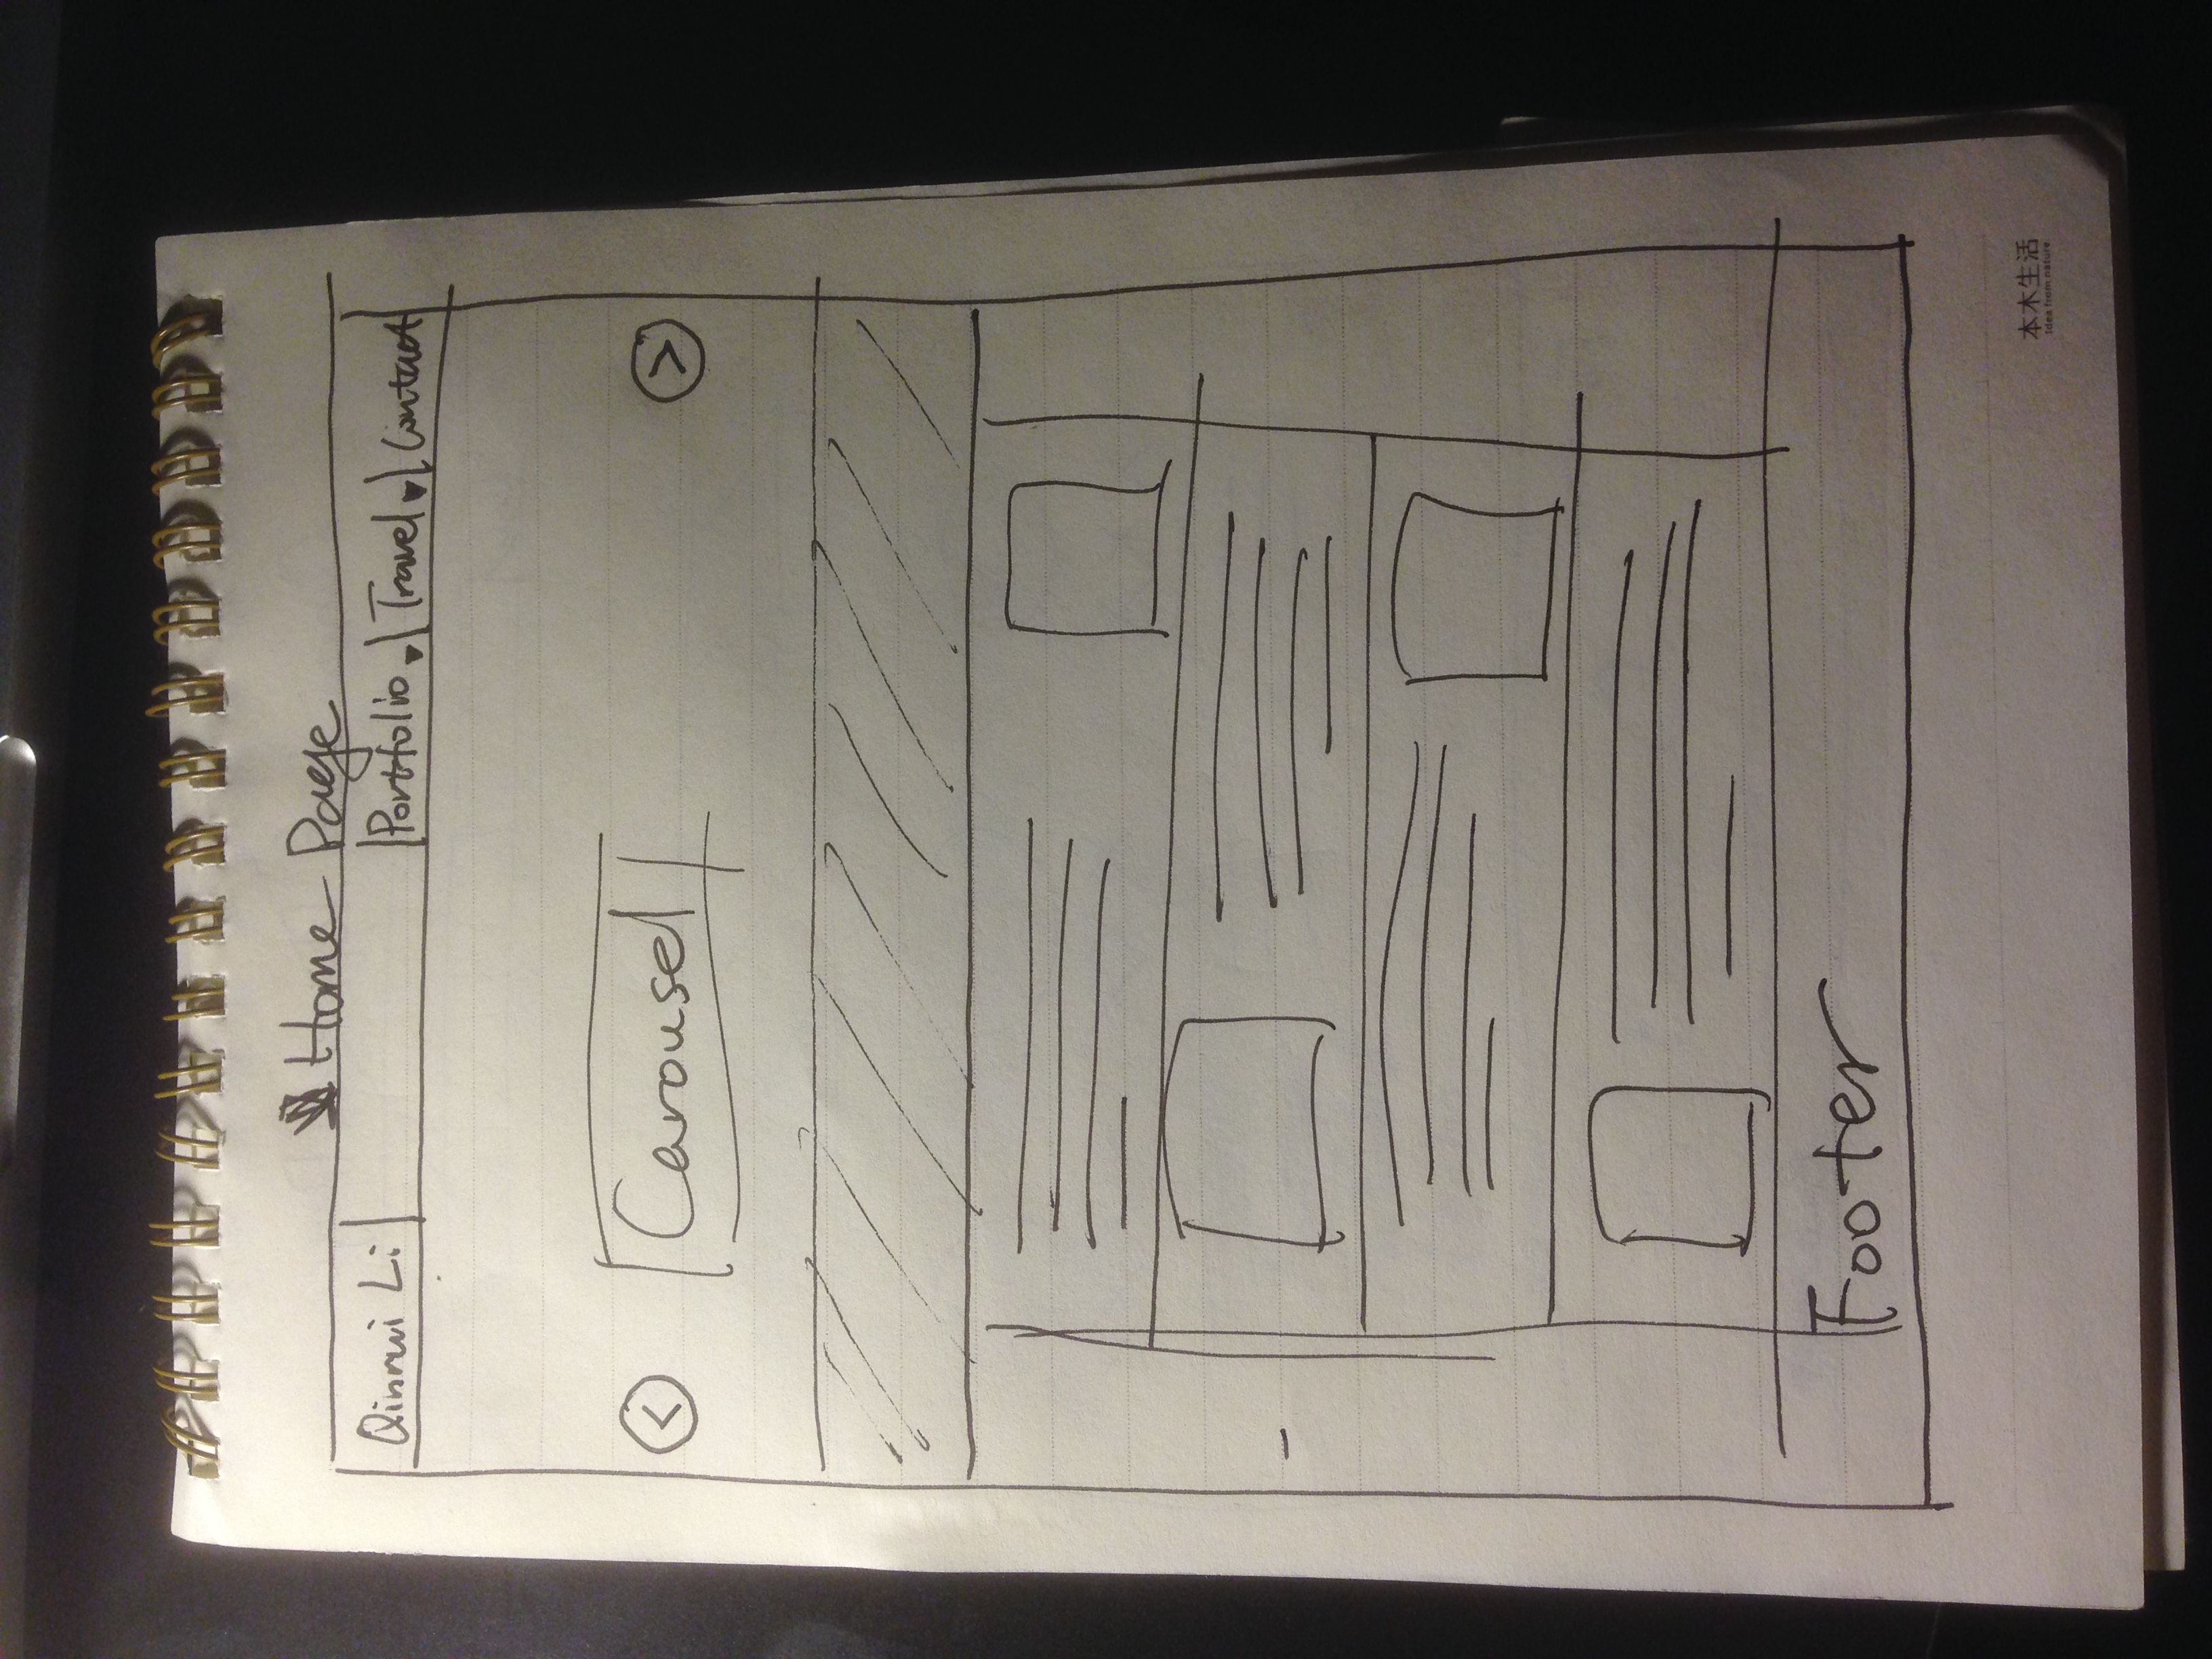 Home Page
Qinrui Li
Portfolio ▾ Travel ▾ Contact
<
Carousel
>
Footer
本木生活
Idea from nature